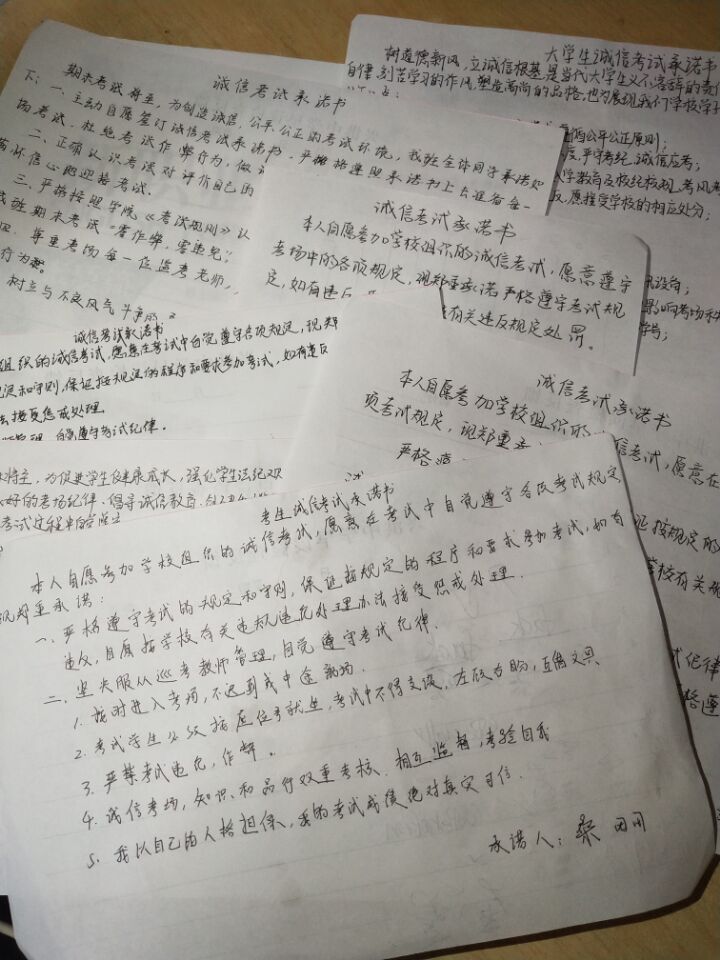 诚信考试承诺书
期末考试将至,为创造诚信、公平、公正的考试环境,我班全体同学承诺如
下:一、主动自愿签订诚信考试承诺书,严格遵照承诺书上去迎着每一
场考试,杜绝考试作弊行为,做
二、正确认识考试对评价自己的
满怀信心的迎接考试.
三、严格按照学院《考试规则》以
我班期末考试“零作弊,零违纪”
四、尊重考场每一位监考老师,
行为.
树立与不良风气斗争的
大学生诚信考试承诺书
树道德新风,立诚信根基,是当代大学生义不容辞的责任
自律,刻苦学习的作风,塑造高尚的品格,也为展现我们学校学
公平公正原则;
严守考纪,诚信应考;
入学教育及校纪校规,考风考
愿接受学校的相应处分;
影响考场秩
诚信考试承诺书
本人自愿参加学校组织的诚信考试,愿意遵守
考场中的各项规定,现郑重承诺严格遵守考试规
定,如有违反
有关违反规定处罚。
诚信考试承诺书
组织的诚信考试,愿意在考试中自觉遵守各项规定,现郑
规定和守则,保证按规定的程序和要求参加考试,如有违反
法接受惩戒处理
管理,自觉遵守考试纪律.
诚信考试承诺书
本人自愿参加学校组织的
信考试,愿意在
项考试规定,现郑重
严格
证按规定的
学校有关
试纪律
格遵
将至,为促进学生健康成长,强化学生法纪观
好的考场纪律,倡导诚信教育,
考试过程中的
考生诚信考试承诺书
本人自愿参加学校组织的诚信考试,愿意在考试中自觉遵守各项考试规定
现郑重承诺:
一、严格遵守考试的规定和守则,保证按规定的程序和要求参加考试,如有
违反,自愿按学校有关违规违纪处理办法接受惩戒处理.
二、坚决服从巡考教师管理,自觉遵守考试纪律.
1.按时进入考场,不迟到或中途离场.
2.考试学生必须按应位号就坐,考试中不得交谈、左顾右盼,互借文具
3.严禁考试违纪,作弊。
4.诚信考场,知识和品行双重考核、相互监督,考验自我
5.我以自己的人格担保,我的考试成绩绝对真实可信.
承诺人: